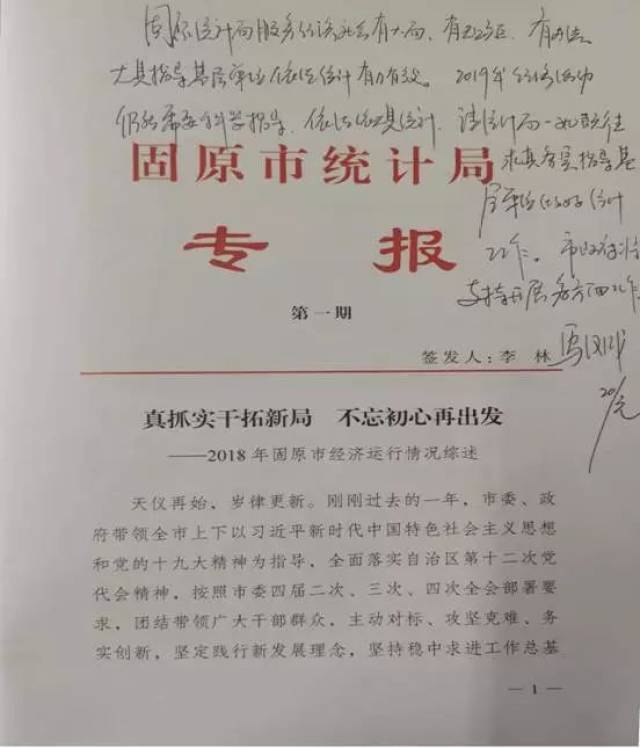 固原统计局服务经济社会有大局、有
指导基层单位依法统计有力有效。2019年经济活动
仍然需要科学指导、依法统计、请统计局一如既往
固原市统计局
求真务实指导基
层单位做好统计
专 报
工作。市政府将
支持开展各方面工作
第一期
签发人：李 林
20/元
真抓实干拓新局 不忘初心再出发
——2018年固原市经济运行情况综述
天仪再始，岁律更新。刚刚过去的一年，市委、政
府带领全市上下以习近平新时代中国特色社会主义思想
和党的十九大精神为指导，全面落实自治区第十二次党
代会精神，按照市委四届二次、三次、四次全会部署要
求，团结带领广大干部群众，主动对标、攻坚克难、务
实创新，坚定践行新发展理念，坚持稳中求进工作总基
— 1 —